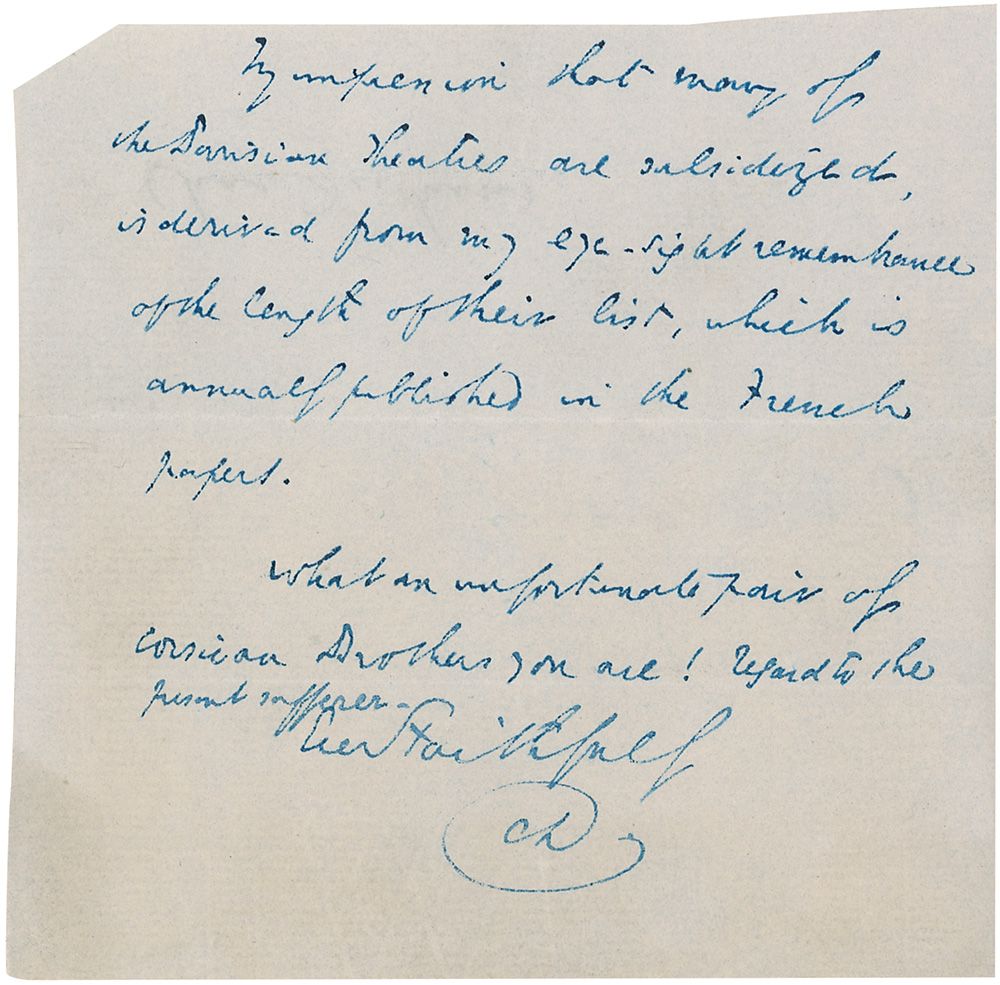 My impression that many of
the Parisian Theatres are subsidized,
is derived from my eye-sight remembrance
of the length of their list, which is
annually published in the French
papers.
What an unfortunate pair of
Corsican Brothers you are! Regard to the
present sufferer.
Ever Faithfully
CD